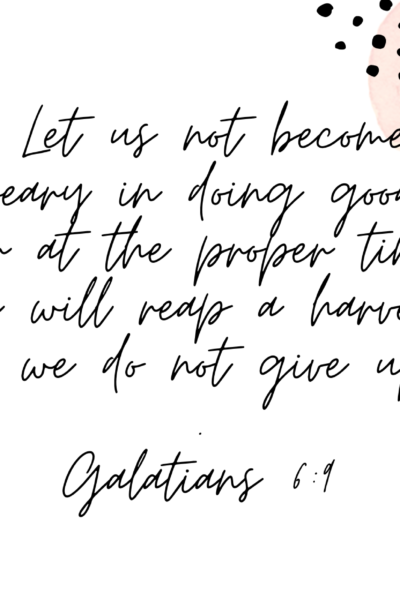 Let us not become
eary in doing good
at the proper ti
will reap a harve
we do not give up
Galatians 6:9